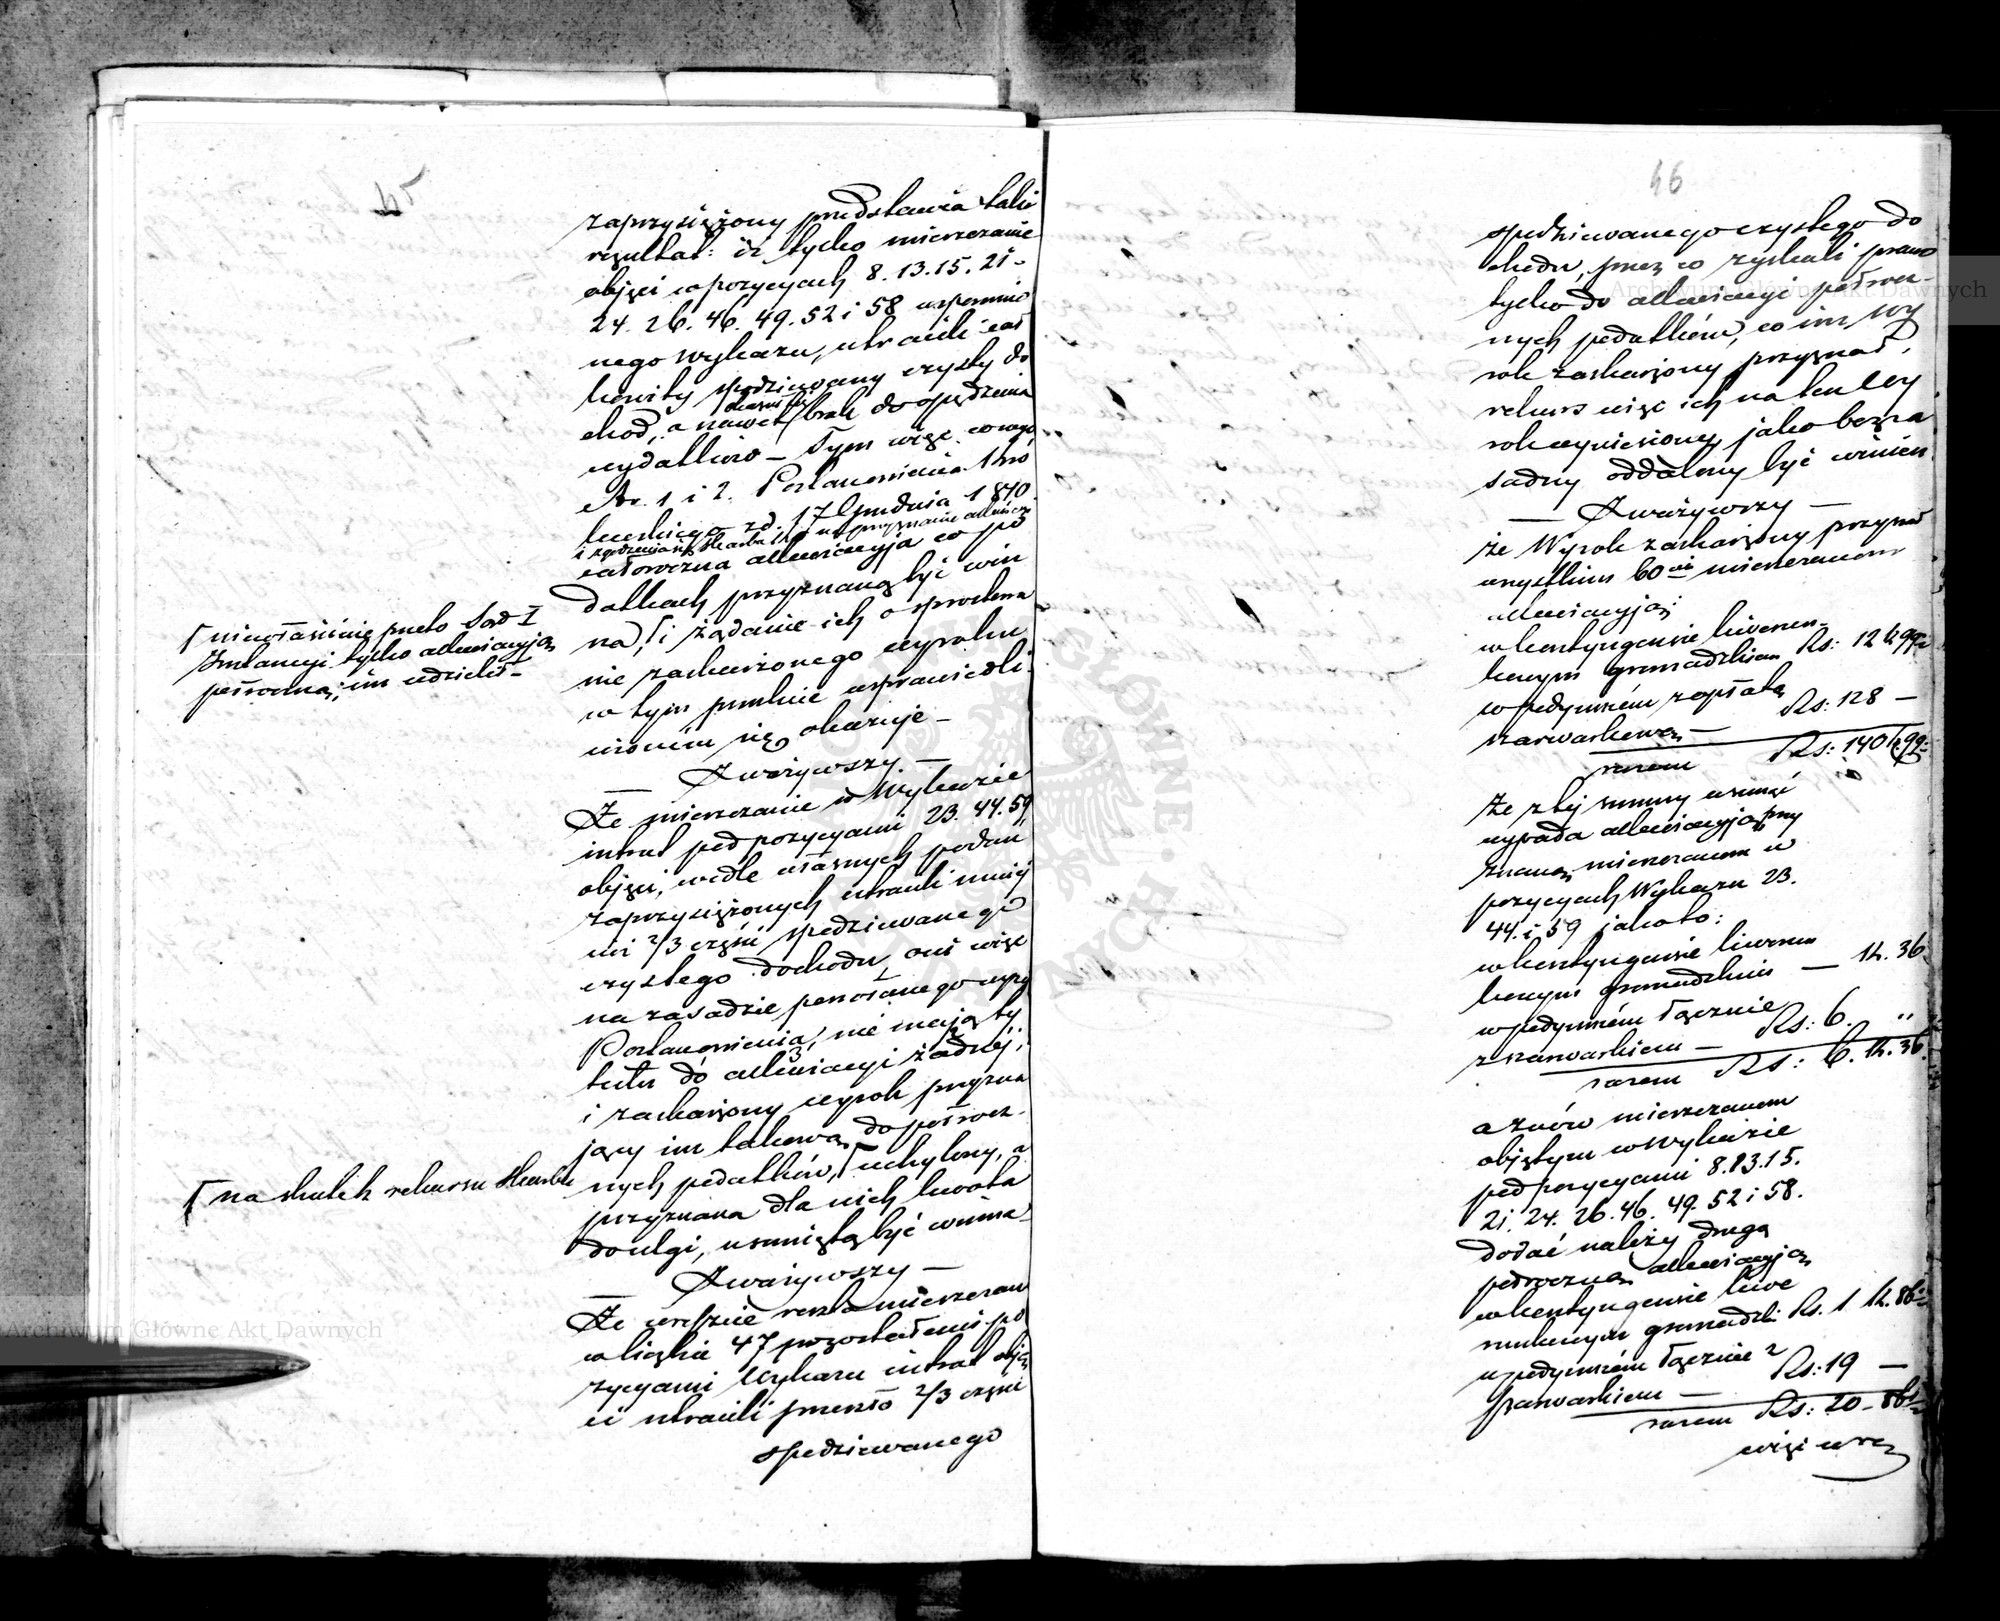 45
zaprzysiężony przedstawia taki
rezultat: iż tylko mieszczanie
objęci w pozycyach 8. 13. 15. 21.
24. 26. 46. 49. 52 i 58 wspomnio
nego wykazu, utracili cał
kowity spodziewany czysty do
chod, a nawet brak do opędzenia
wydatków – Tym więc
Ar. 1 i 2. Postanowienia
17 Grudnia 1840
całoroczna allewiacyja w po
datkach przyznaną być win
na, i żądanie ich o sprostowa
nie zaskarżonego wyroku
w tym punkcie usprawiedli
wionem się okazuje –
Zważywszy –
Że mieszczanie w Wykazie
intrat pod pozycyami 23. 44. 59
objęci, wedle własnych podań
zaprzysiężonych utracili mniéj
niż 2/3 część spodziewanego
czystego dochodu, oni więc
na zasadzie powołanego wyżéj
Postanowienia, nie mają ty
tułu do allewiacyi żadnéj;
i zaskarżony wyrok przyzna
jący im takową do półrocz
nych podatków, uchylony, a
przyznana dla nich kwota
do ulgi, usuniętą być winna –
Zważywszy –
Że wreszcie reszta mieszczan
w liczbie 47 pozostałemi po
zycyami Wykazu intrat objęci
utracili przeszło 2/3 części
spodziewanego
niewłaściwie przeto Sąd I
Instancyi tylko allewiacyją
półroczną im udzielił –
na skutek rekursu Skarbu
46
spodziewanego czystego do
chodu, przez co zyskali prawo
tylko do allewiacyi półrocz
nych podatków, co im wy
rok zaskarżony przyznał,
rekurs więc ich na ten wy
rok wyniesiony, jako bezza
sadny oddalony być winien.
Zważywszy –
że Wyrok zaskarżony przyznał
wszystkim 60 mieszczanom
allewiacyją:
w kontyngensie liweren
kowym gromadzkim Rs: 12 k 99
w podymném zapłatą
szarwarkową – Rs: 128 –
razem Rs: 140 k 99
że z téj summy usunąć
wypada allewiacyją przy
znaną mieszczanom w
pozycyach Wykazu 23.
44. i 59 jako to:
w kontyngensie liweren
kowym gromadzkim — k. 36
w podymném łącznie
z szarwarkiem – Rs: 6. "
razem Rs: 6. k. 36.
a znów mieszczanom
objętym w Wykazie
pod pozycyami 8. 13. 15.
21. 24. 26. 46. 49. 52 i 58.
dodać należy drugą
półroczną allewiacyją
w kontyngensie liwe
runkowym gromadzki Rs. 1 k. 86
w podymném łącznie z
szarwarkiem – Rs: 19 –
razem Rs: 20 – 86
więc wraz
Archiwum Główne Akt Dawnych
Archiwum Główne Akt Dawnych